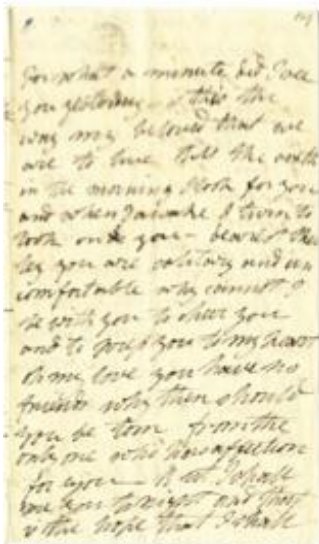 For what a minute did I see
you yesterday – is this the
way my beloved that we
are to live till the sixth
in the morning I look for you
and when I awake I turn to
look on you – dearest Shel
ley you are solitary and un
comfortable why cannot I
be with you to cheer you
and to press you to my heart
oh my love you have no
friends why then should
you be torn from the
only one who has affection
for you – But I shall
see you tonight and
is the hope that I shall